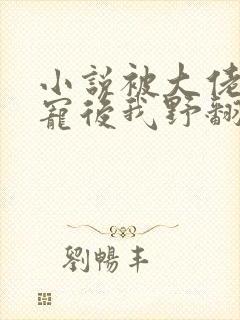 小說被大佬
寵後我野翻
劉暢丰